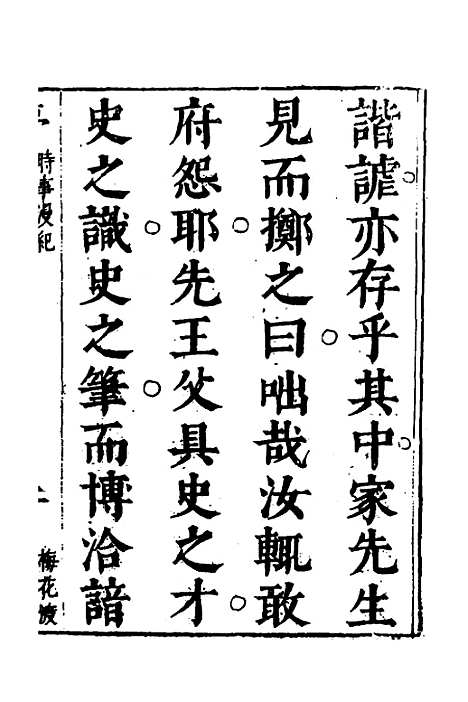 諧謔亦存乎其中家先生
見而擲之曰咄哉汝輒敢
府怨耶先王父具史之才
史之識史之筆而博洽諳
時事漫紀
梅花渡